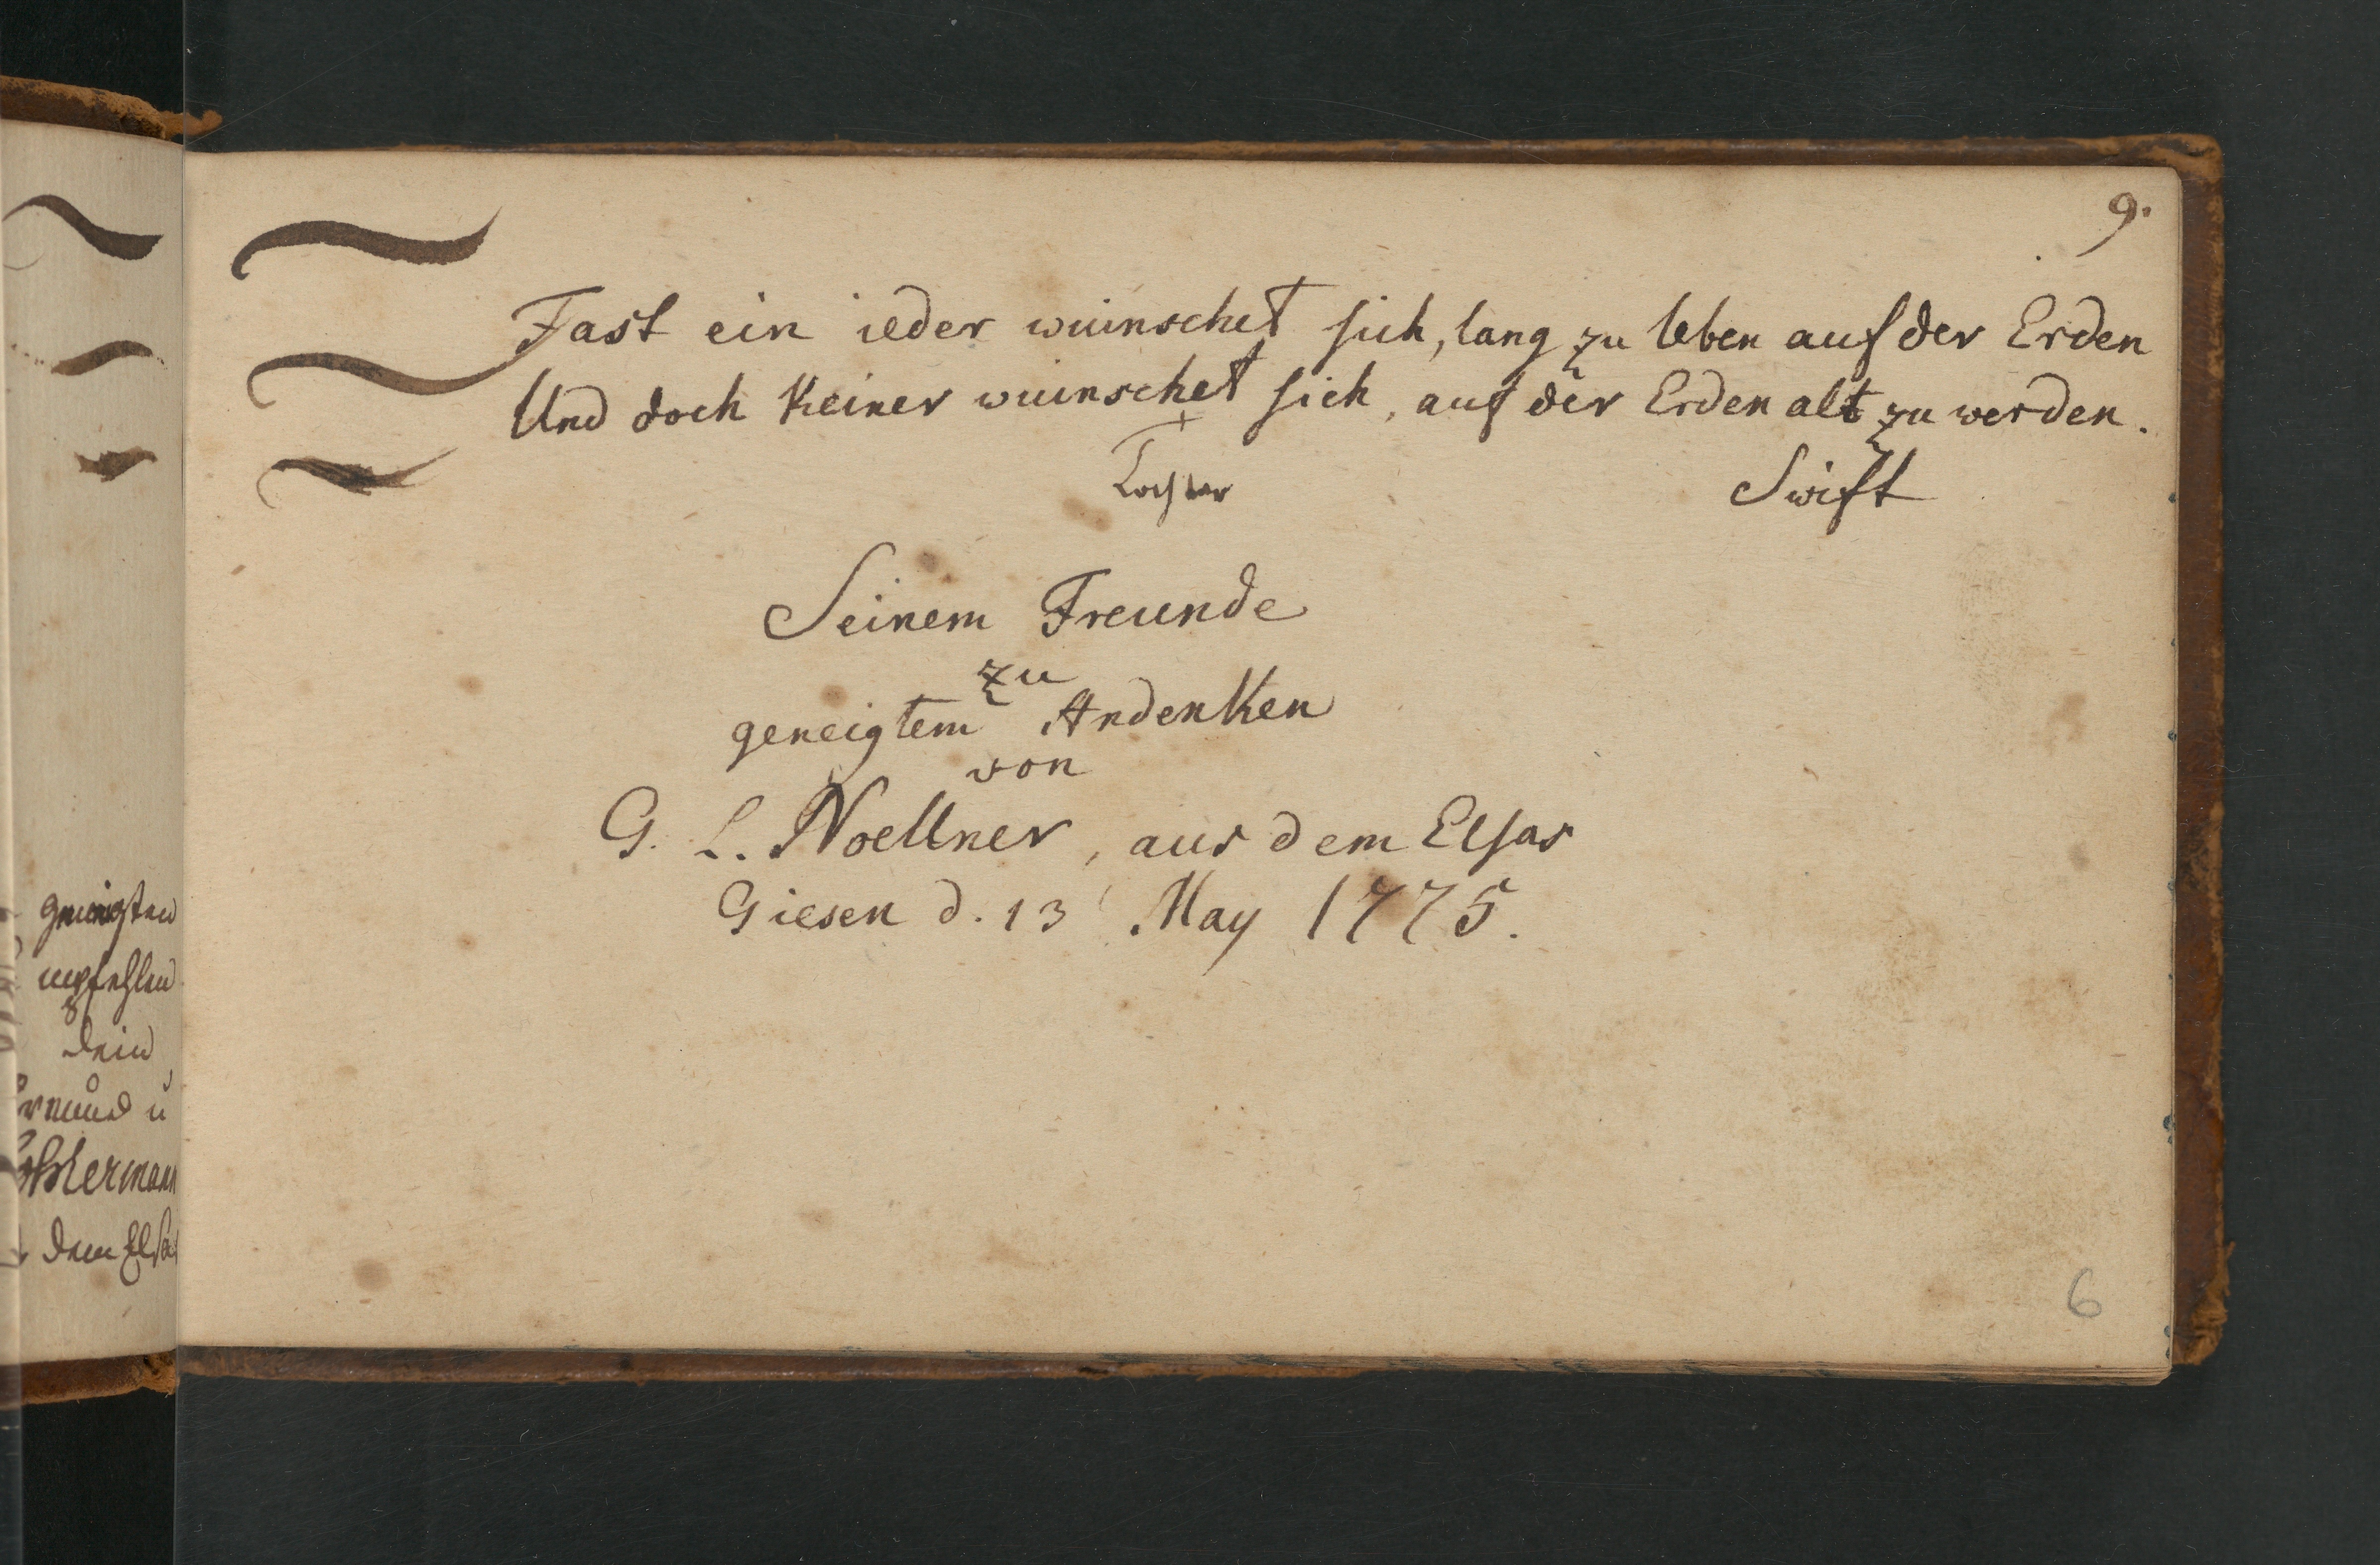 9.
Fast ein ieder wüinschet sich, lang zu leben auf der Erden
Und doch Keiner wüinschet sich, auf der Erden alt zu werden.
Swift
Seinem Freunde
zu
geneigtem Andenken
von
G. L. Noellner, aus dem Elsas
Giesen d. 13 May 1775.
6
geneigten
empfehlen
dein
Freund u
dem Elsas